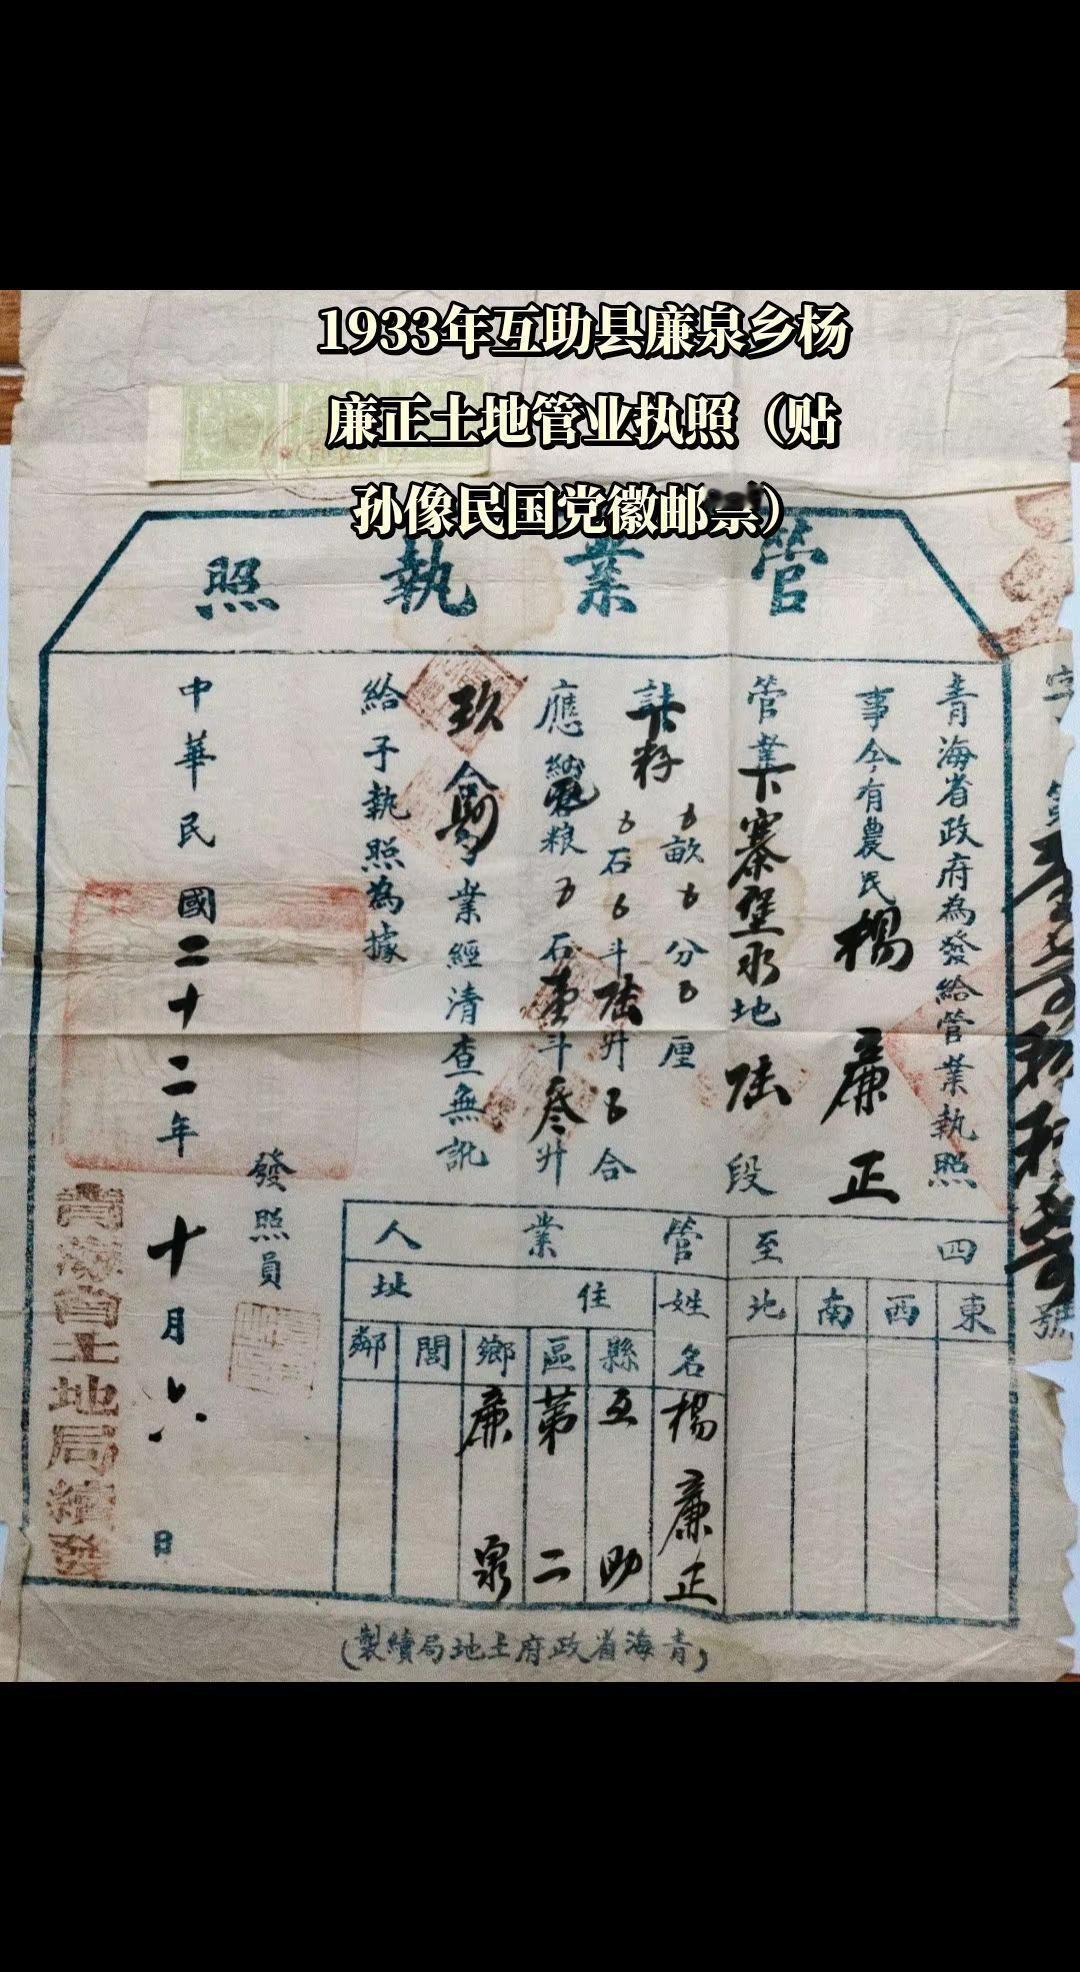 1933年互助县廉泉乡杨
廉正土地管业执照（贴
孙像民国党徽邮票）
管業執照
字第
號
青海省政府為發給管業執照
事今有農民楊廉正
管業下寨堡水地陆段
計
畝 分 厘
石 斗陆升 合
應納 粮 石壹斗叁升
玖合 業經清查無訛
給予執照為據
發照員
中華民國二十二年十月六日
青海省土地局續發
四至
東
西
南
北
管業人
姓名
楊廉正
住址
縣
互助
區
第二
鄉
廉泉
閭
鄰
(青海省政府土地局續製)